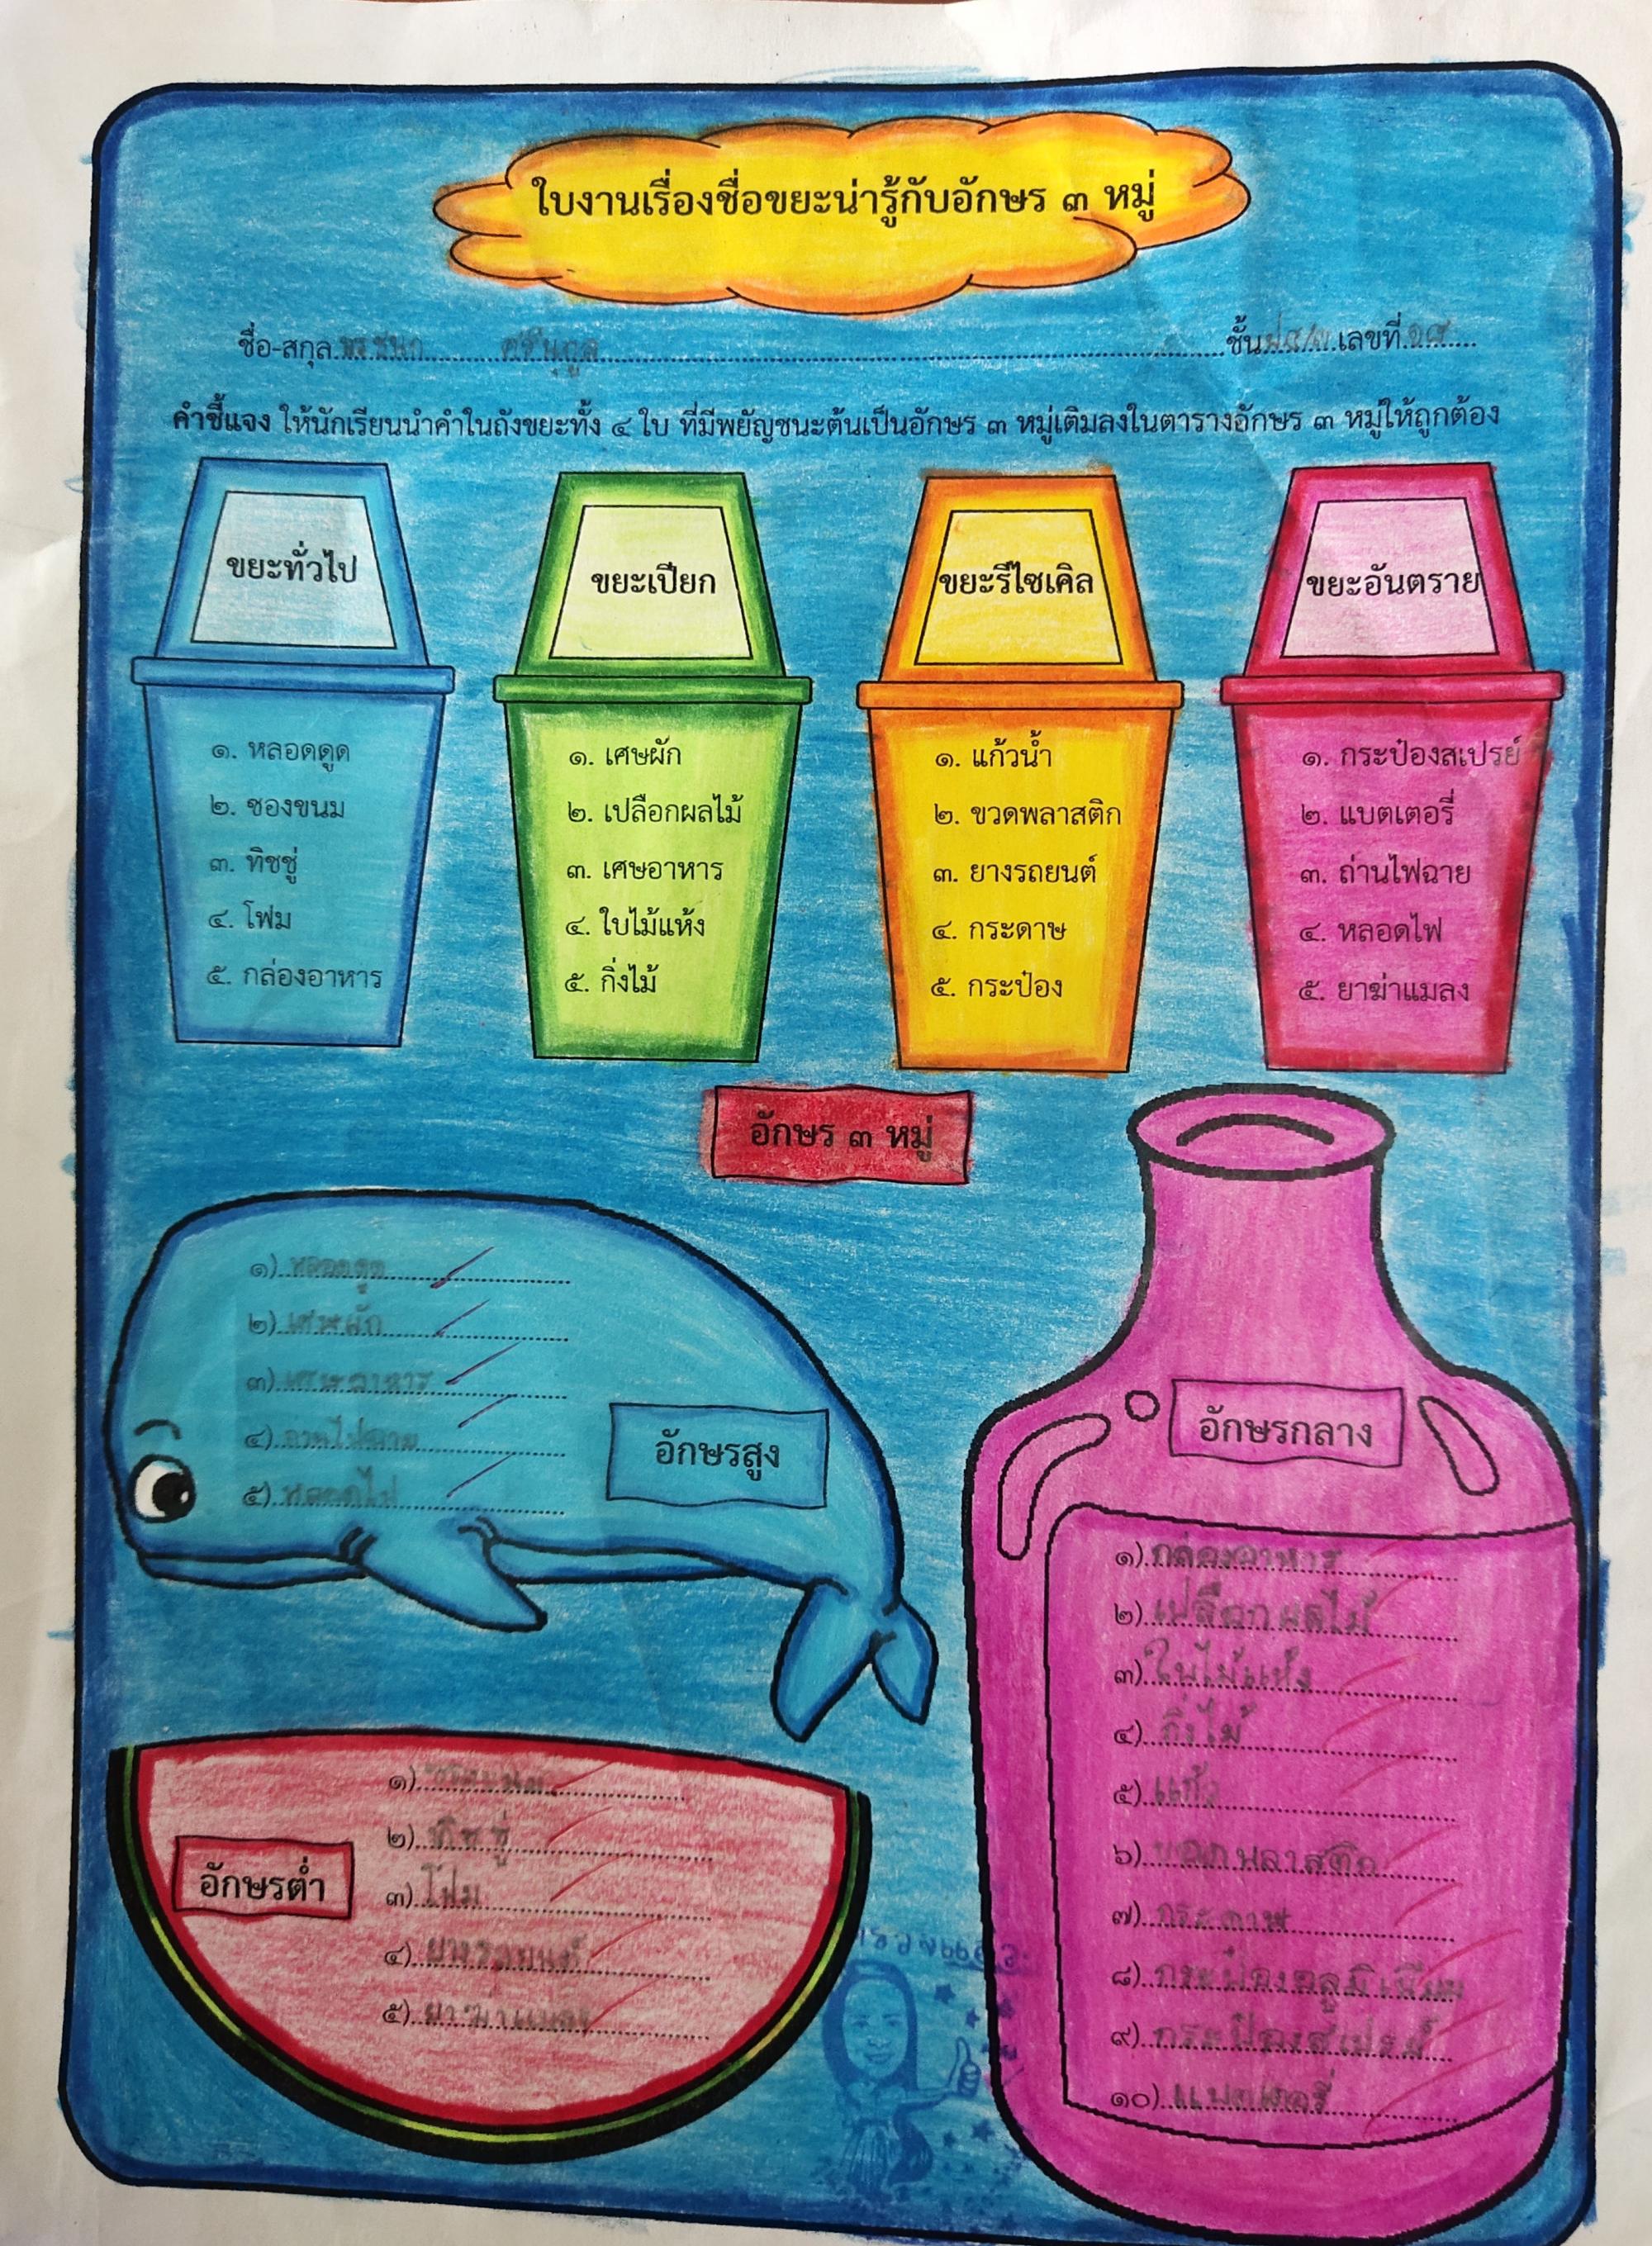 ใบงานเรื่องชื่อขยะน่ารู้กับอักษร ๓ หมู่
ชื่อ-สกุล ชั้น เลขที่
คำชี้แจง ให้นักเรียนนำคำในถังขยะทั้ง ๔ ใบ ที่มีพยัญชนะต้นเป็นอักษร ๓ หมู่เติมลงในตารางอักษร ๓ หมู่ให้ถูกต้อง
ขยะทั่วไป
๑. หลอดดูด
๒. ซองขนม
๓. ทิชชู่
๔. โฟม
๕. กล่องอาหาร
ขยะเปียก
๑. เศษผัก
๒. เปลือกผลไม้
๓. เศษอาหาร
๔. ใบไม้แห้ง
๕. กิ่งไม้
ขยะรีไซเคิล
๑. แก้วน้ำ
๒. ขวดพลาสติก
๓. ยางรถยนต์
๔. กระดาษ
๕. กระป๋อง
ขยะอันตราย
๑. กระป๋องสเปรย์
๒. แบตเตอรี่
๓. ถ่านไฟฉาย
๔. หลอดไฟ
๕. ยาฆ่าแมลง
อักษร ๓ หมู่
อักษรสูง
๑) หลอดดูด
๒) เศษผัก
๓) เศษอาหาร
๔) ถ่านไฟฉาย
๕) หลอดไฟ
อักษรกลาง
๑) กล่องอาหาร
๒) เปลือกผลไม้
๓) ใบไม้แห้ง
๔) กิ่งไม้
๕) แก้ว
๖) ขวดพลาสติก
๗) กระดาษ
๘) กระป๋องอลูมิเนียม
๙) กระป๋องสเปรย์
๑๐) แบตเตอรี่
อักษรต่ำ
๑) ซองขนม
๒) ทิชชู่
๓) โฟม
๔) ยางรถยนต์
๕) ยาฆ่าแมลง
ตรวจแล้ว